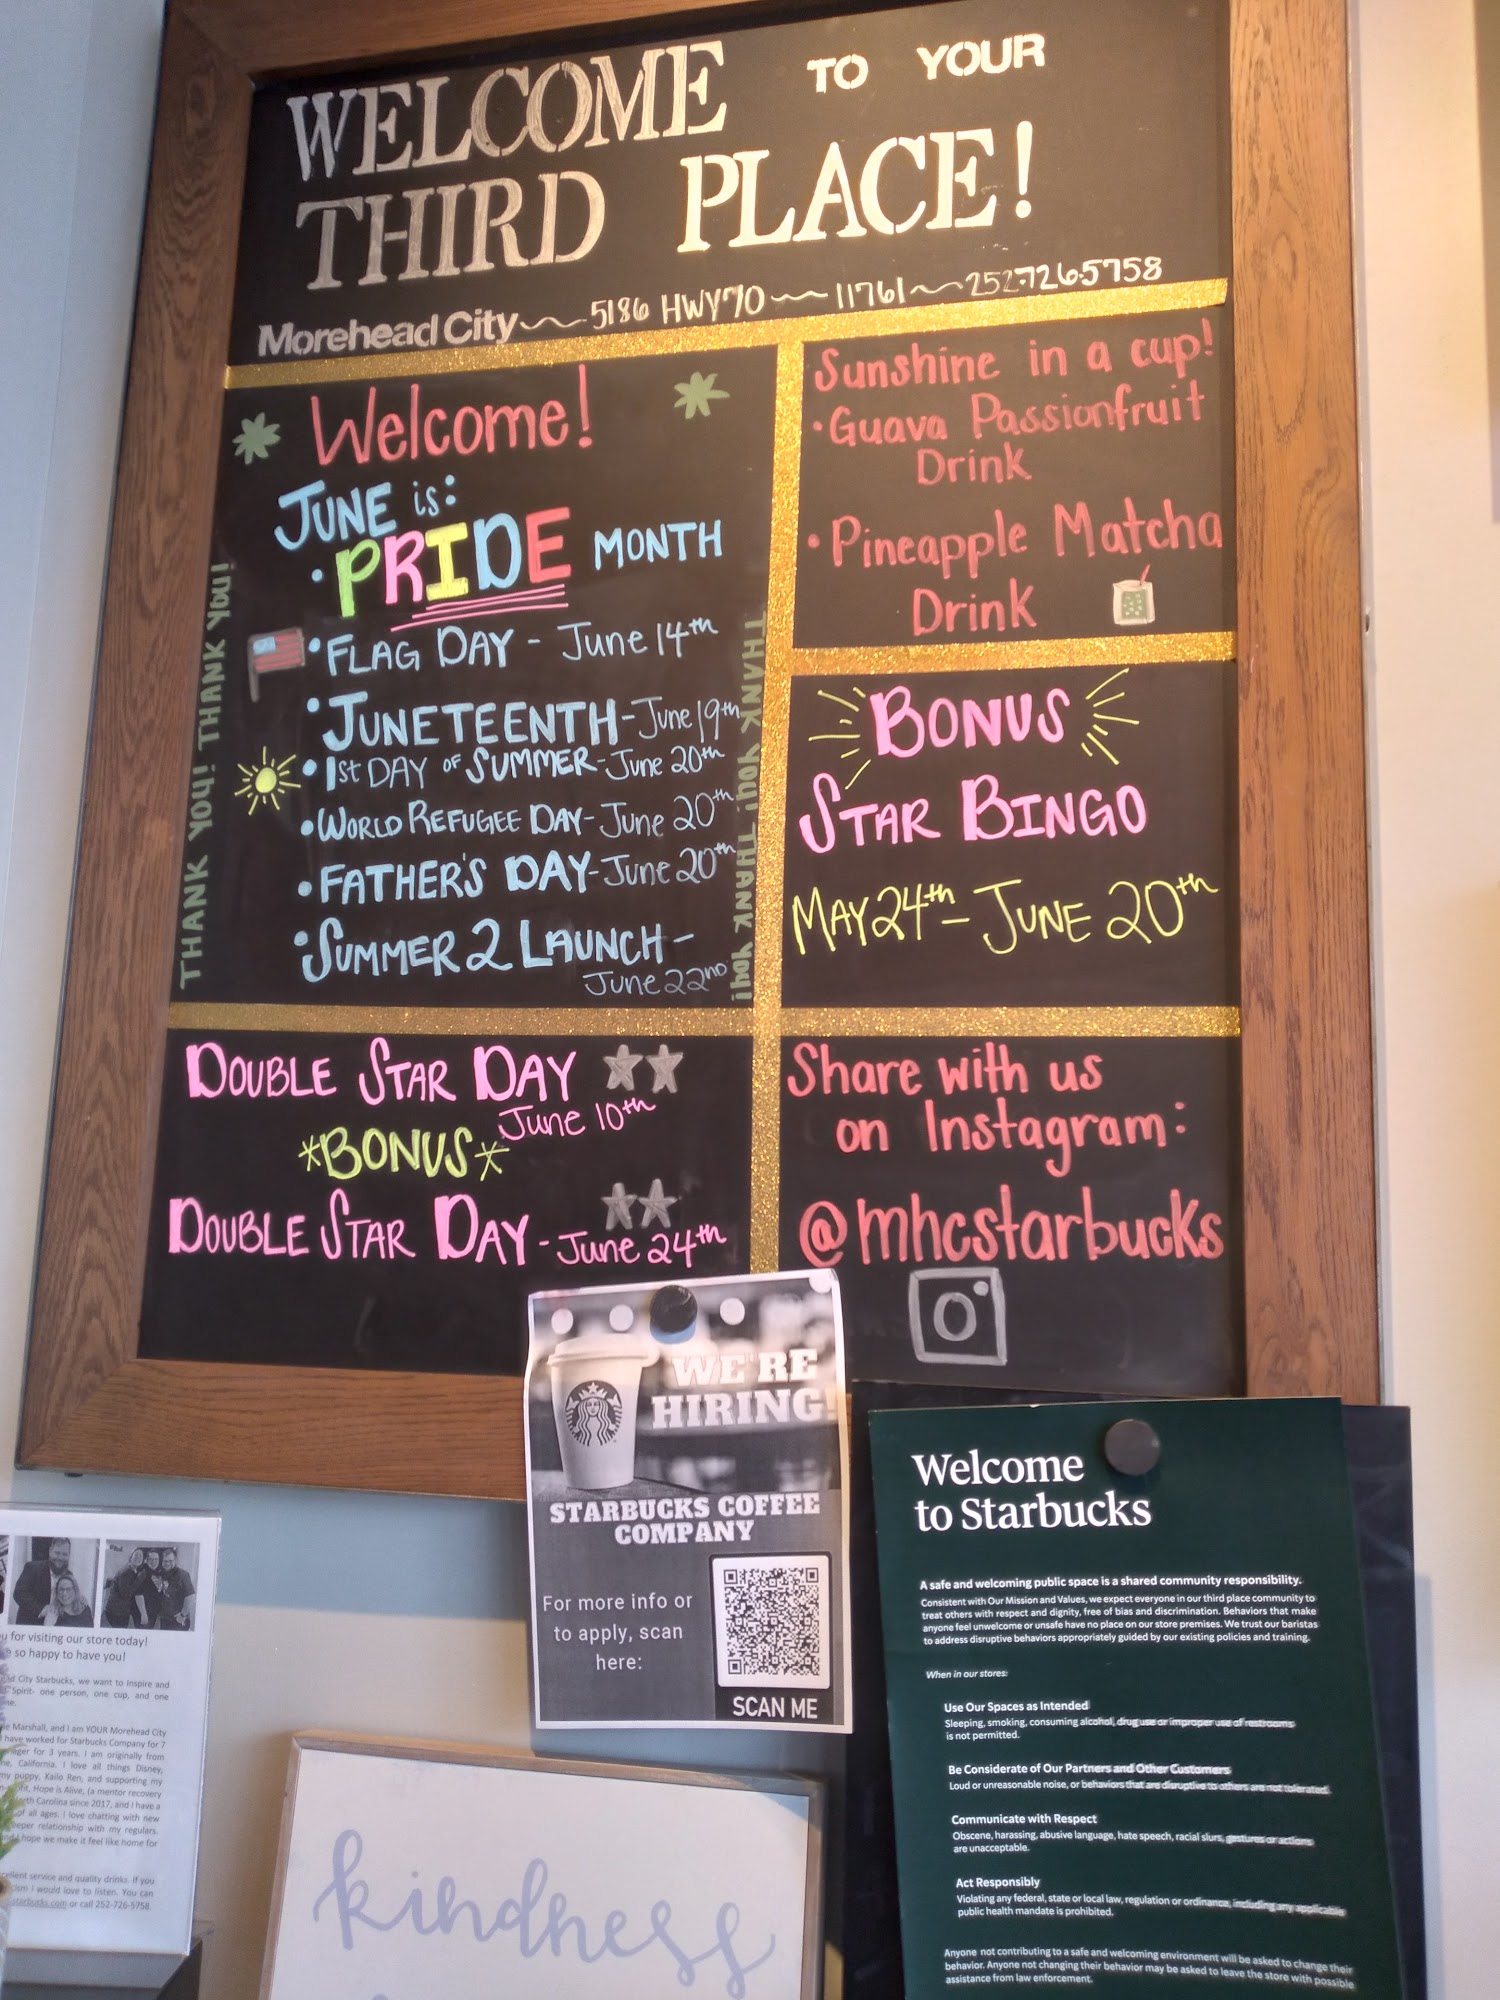 WELCOME TO YOUR
THIRD PLACE!
Morehead City 5186 HWY 70 11761 252-726-5758
Welcome!
JUNE is:
• PRIDE MONTH
• FLAG DAY - June 14th
• JUNETEENTH - June 19th
• 1st DAY OF SUMMER - June 20th
• WORLD REFUGEE DAY - June 20th
• FATHER'S DAY - June 20th
• SUMMER 2 LAUNCH -
June 22nd
THANK YOU! THANK YOU!
THANK YOU! THANK YOU!
Sunshine in a cup!
• Guava Passionfruit
Drink
• Pineapple Matcha
Drink
BONUS
STAR BINGO
MAY 24th - JUNE 20th
DOUBLE STAR DAY
June 10th
*BONUS*
DOUBLE STAR DAY - June 24th
Share with us
on Instagram:
@mhcstarbucks
WE'RE
HIRING!
STARBUCKS COFFEE
COMPANY
For more info or
to apply, scan
here:
SCAN ME
Welcome
to Starbucks
A safe and welcoming public space is a shared community responsibility.
Consistent with Our Mission and Values, we expect everyone in our third place community to
treat others with respect and dignity, free of bias and discrimination. Behaviors that make
anyone feel unwelcome or unsafe have no place on our store premises. We trust our baristas
to address disruptive behaviors appropriately guided by our existing policies and training.
When in our stores:
Use Our Spaces as Intended
Sleeping, smoking, consuming alcohol, drug use or improper use of restrooms
is not permitted.
Be Considerate of Our Partners and Other Customers
Loud or unreasonable noise, or behaviors that are disruptive to others are not tolerated.
Communicate with Respect
Obscene, harassing, abusive language, hate speech, racial slurs, gestures or actions
are unacceptable.
Act Responsibly
Violating any federal, state or local law, regulation or ordinance, including any applicable
public health mandate is prohibited.
Anyone not contributing to a safe and welcoming environment will be asked to change their
behavior. Anyone not changing their behavior may be asked to leave the store with possible
assistance from law enforcement.
for visiting our store today!
so happy to have you!
City Starbucks, we want to Inspire and
Spirit- one person, one cup, and one
Marshall, and I am YOUR Morehead City
have worked for Starbucks Company for 7
for 3 years. I am originally from
California. I love all things Disney,
my puppy, Kailo Ren, and supporting my
Hope is Alive, (a mentor recovery
Carolina since 2017, and I have a
of all ages. I love chatting with new
relationship with my regulars.
hope we make it feel like home for
service and quality drinks. If you
I would love to listen. You can
starbucks.com or call 252-726-5758
kindness